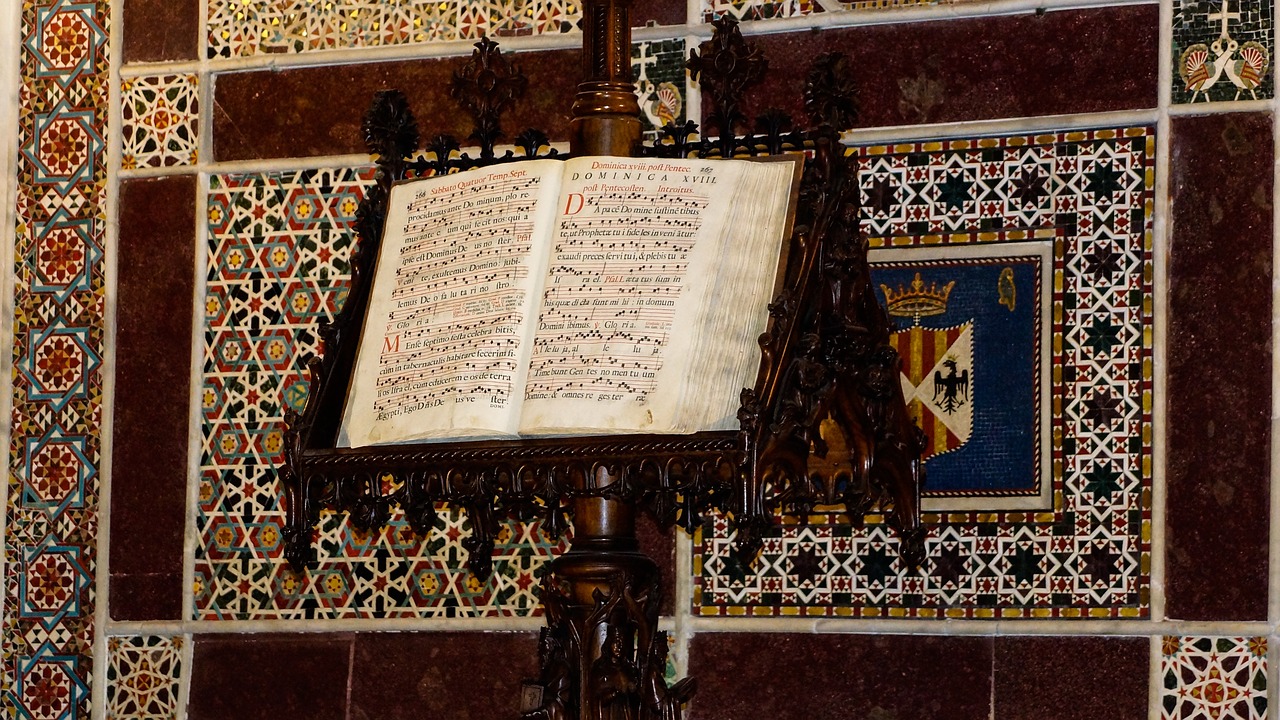 268 Sabbato Quatuor Temp. Sept.
procidamus ante Do minum, plo re-
mus ante e um qui fecit nos qui a
ipse est Dominus De us no ster. Psal.
Venite, exultemus Domino jubi-
lemus De o salu ta ri no stro.
Glo ri a.
MEnse septimo festa celebra bitis,
cum in tabernaculis habitare fecerim fi-
lios Isra el, cum educerem e os de terra
Ægypti, Ego Dñs De us ve ster.
DOMI-
Dominica xviii. post Pentec. 267
DOMINICA XVIII
post Pentecosten. Introitus.
DA pa cē Do mine sustinē tibus
te, ut Prophetæ tu i fide les inveni ātur:
exaudi preces servi tu i, & plebis tu æ
Is ra el. Psal. Lætatus sum in
his quæ di cta sunt mi hi: in domum
Domini ibimus. ℣. Glo ri a.
Al le lu ja, al le lu ja.
Timebunt Gen tes no men tu um
Domine: & omnes re ges ter ræ